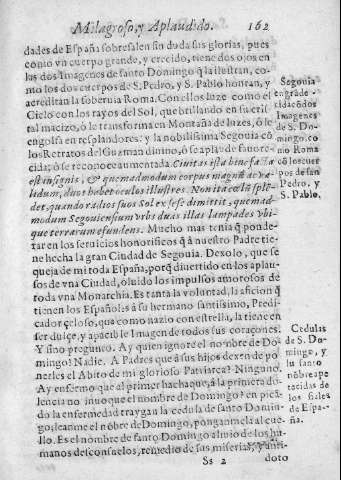 Milagroso, y Aplaudido. 162
dades de España sobresalen sin duda sus glorias, pues
como vn cuerpo grande, y crecido, tiene dos ojos en
las dos Imagenes de santo Domingo q̃ la ilustran, co
mo los dos cuerpos de S. Pedro, y S. Pablo honran, y
acreditan la soberuia Roma. Con ellos luze como el
Cielo con los rayos del Sol, que brillando en su cris-
tal macizo, ò le transforma en Montaña de luzes, ò le
engolfa en resplandores: y la nobilissima Segouia cõ
los Retratos del Guzman diuino, ò se aplaude fauore-
cida; ò se reconoce aumentada. Ciuitas ista bine
est insignis, & quemadmodum corpus magnũ & va-
lidum, duos habet oculos illustres. Non ita cœlũ splẽ-
det, quando radios suos Sol ex sese dimittit, quemad
modum Segouiensium vrbs duas illas lampades vbi-
que terrarum efundens. Mucho mas tenia q̃ ponde-
rar en los seruicios honorificos q̃ à nuestro Padre tie-
ne hecha la gran Ciudad de Segouia. Dexolo, que se
queja de mi toda España, porq̃ diuertido en los aplau-
sos de vna Ciudad, oluido los impulsos amorosos de
toda vna Monarchia. Es tanta la voluntad, la aficion q̃
tienen los Españoles à su hermano santissimo, Predi-
cador çeloso, que como nazio con estrella, la tiene en
ser dulce, y apacible Imagen de todos sus coraçones.
Y sino pregunto. Ay quien ignore el nombre de Do-
mingo? Nadie. A Padres que à sus hijos dexen de po-
nerles el Abito de mi glorioso Patriarca? Ninguno.
Ay enfermo que al primer hachaque, à la primera do-
lencia no inuoque el nombre de Domingo? en pican
do la enfermedad traygan la cedula de santo Domin-
go; leanme el nõbre de Domingo, ponganmela al cue-
llo. Es el nombre de santo Domingo aliuio de los hu-
manos desconsuelos, remedio de sus miserias, y anti-
Ss 2 doto
Segouia
engrade-
cida cõ dos
Imagenes
de S. Do-
mingo, co
mo Roma
cõ los cuer
pos de san
Pedro, y
S. Pablo.
Cedulas
de S. Do-
mingo, y
su santo
nõbre ape
tecidas de
los fieles
de Espa-
ña.